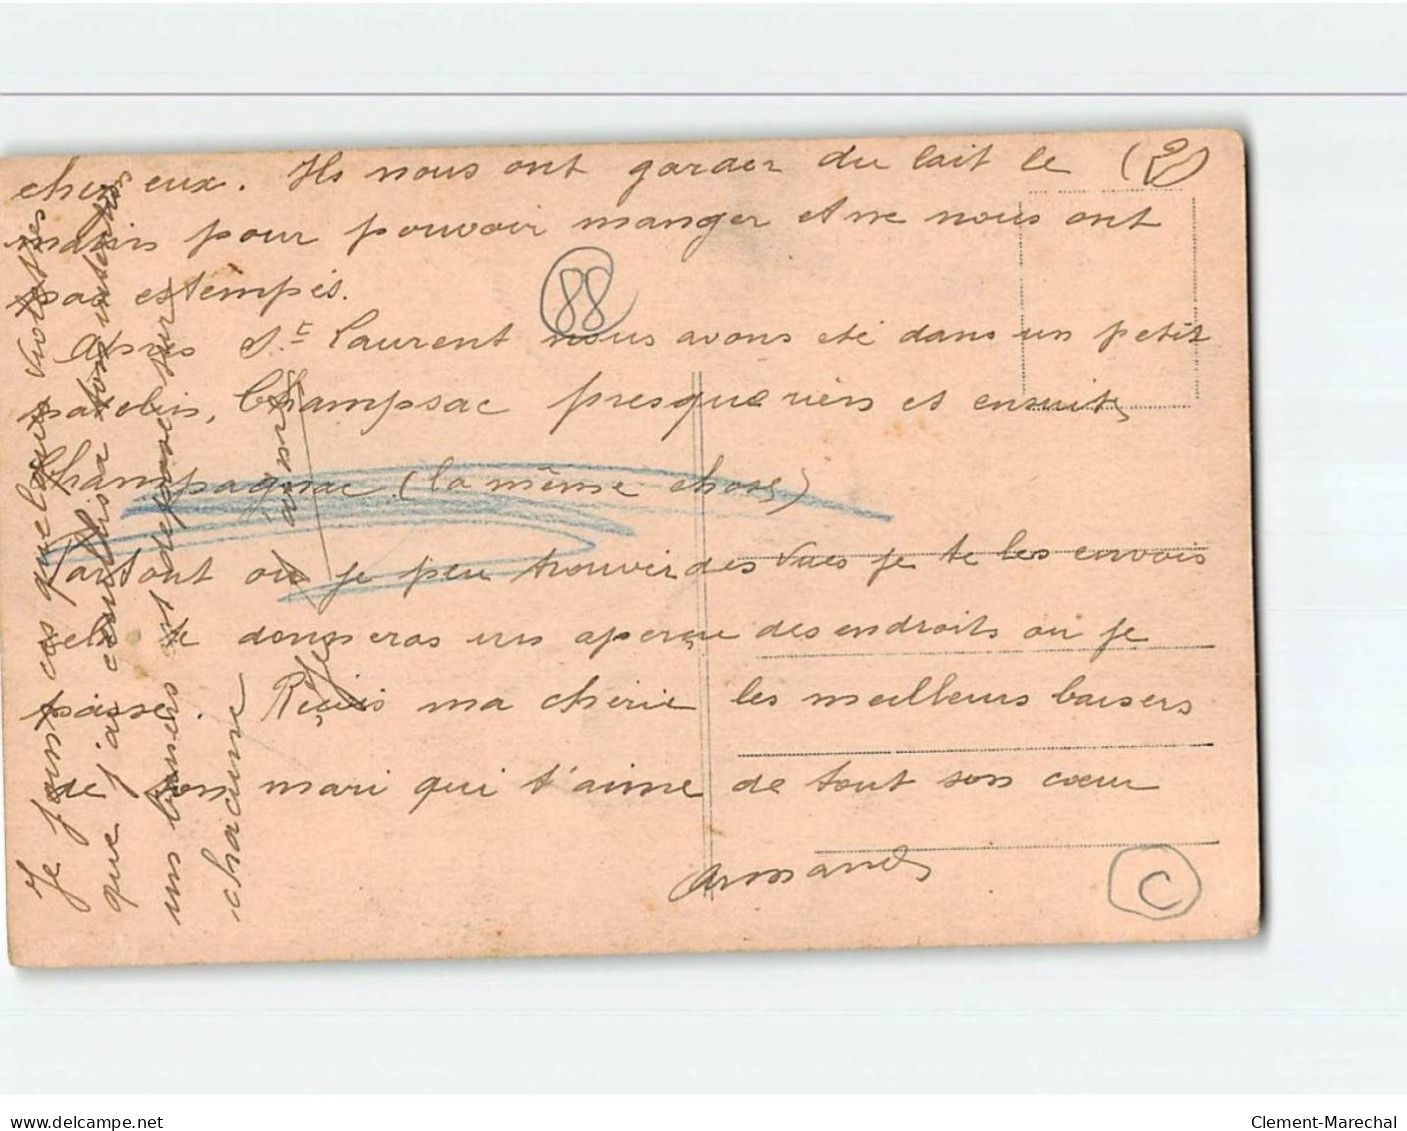 chez eux. Ils nous ont garder du lait le (2)
matin pour pouvoir manger et ne nous ont
pas estempés.
88
Après St Laurent nous avons été dans un petit
patelin, Champsac presque rien et ensuite
Champagnac (la même chose)
Partout ou je peu trouver des vues je te les envois
cela te donneras un aperçue des endroits ou je
passe. Reçois ma cherie les meilleurs baisers
de ton mari qui t'aime de tout son cœur
Armand
C
Je joins ces quelques violettes
que j'ai cueillis à ton intention
un baiser est déposé sur
chacune
www.delcampe.net
Clement-Marechal